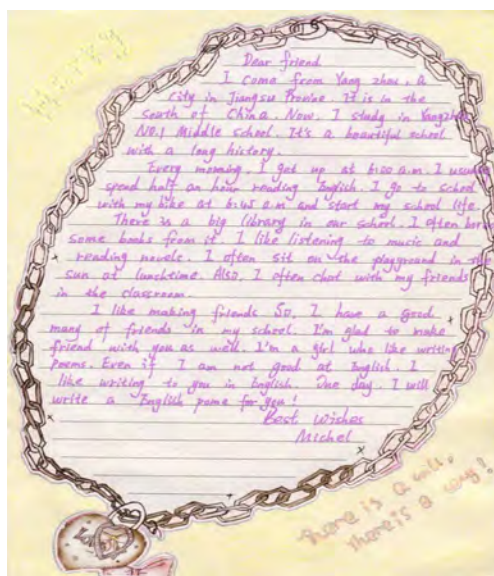 Merry
Dear friend
I come from Yang zhou. a
city in Jiangsu Provine. It is in the
south of China. Now. I study in Yangzhou
NO.1 Middle school. It's a beautiful school
with a long history.
Every morning. I get up at 6:00 a.m. I usually
spend half an hour reading English. I go to school
with my bike at 6:45 a.m and start my school life.
There is a big library in our school. I often borrow
some books from it. I like listening to music and
reading novels. I often sit on the playground in the
sun at lunchtime. Also, I often chat with my friends
in the classroom.
I like making friends So, I have a good
many of friends in my school. I'm glad to make
friend with you as well. I'm a girl who like writing
poems. Even if I am not good at English. I
like writing to you in English. One day. I will
write a English pome for you!
Best wishes
Michel
There is a will,
there is a way!